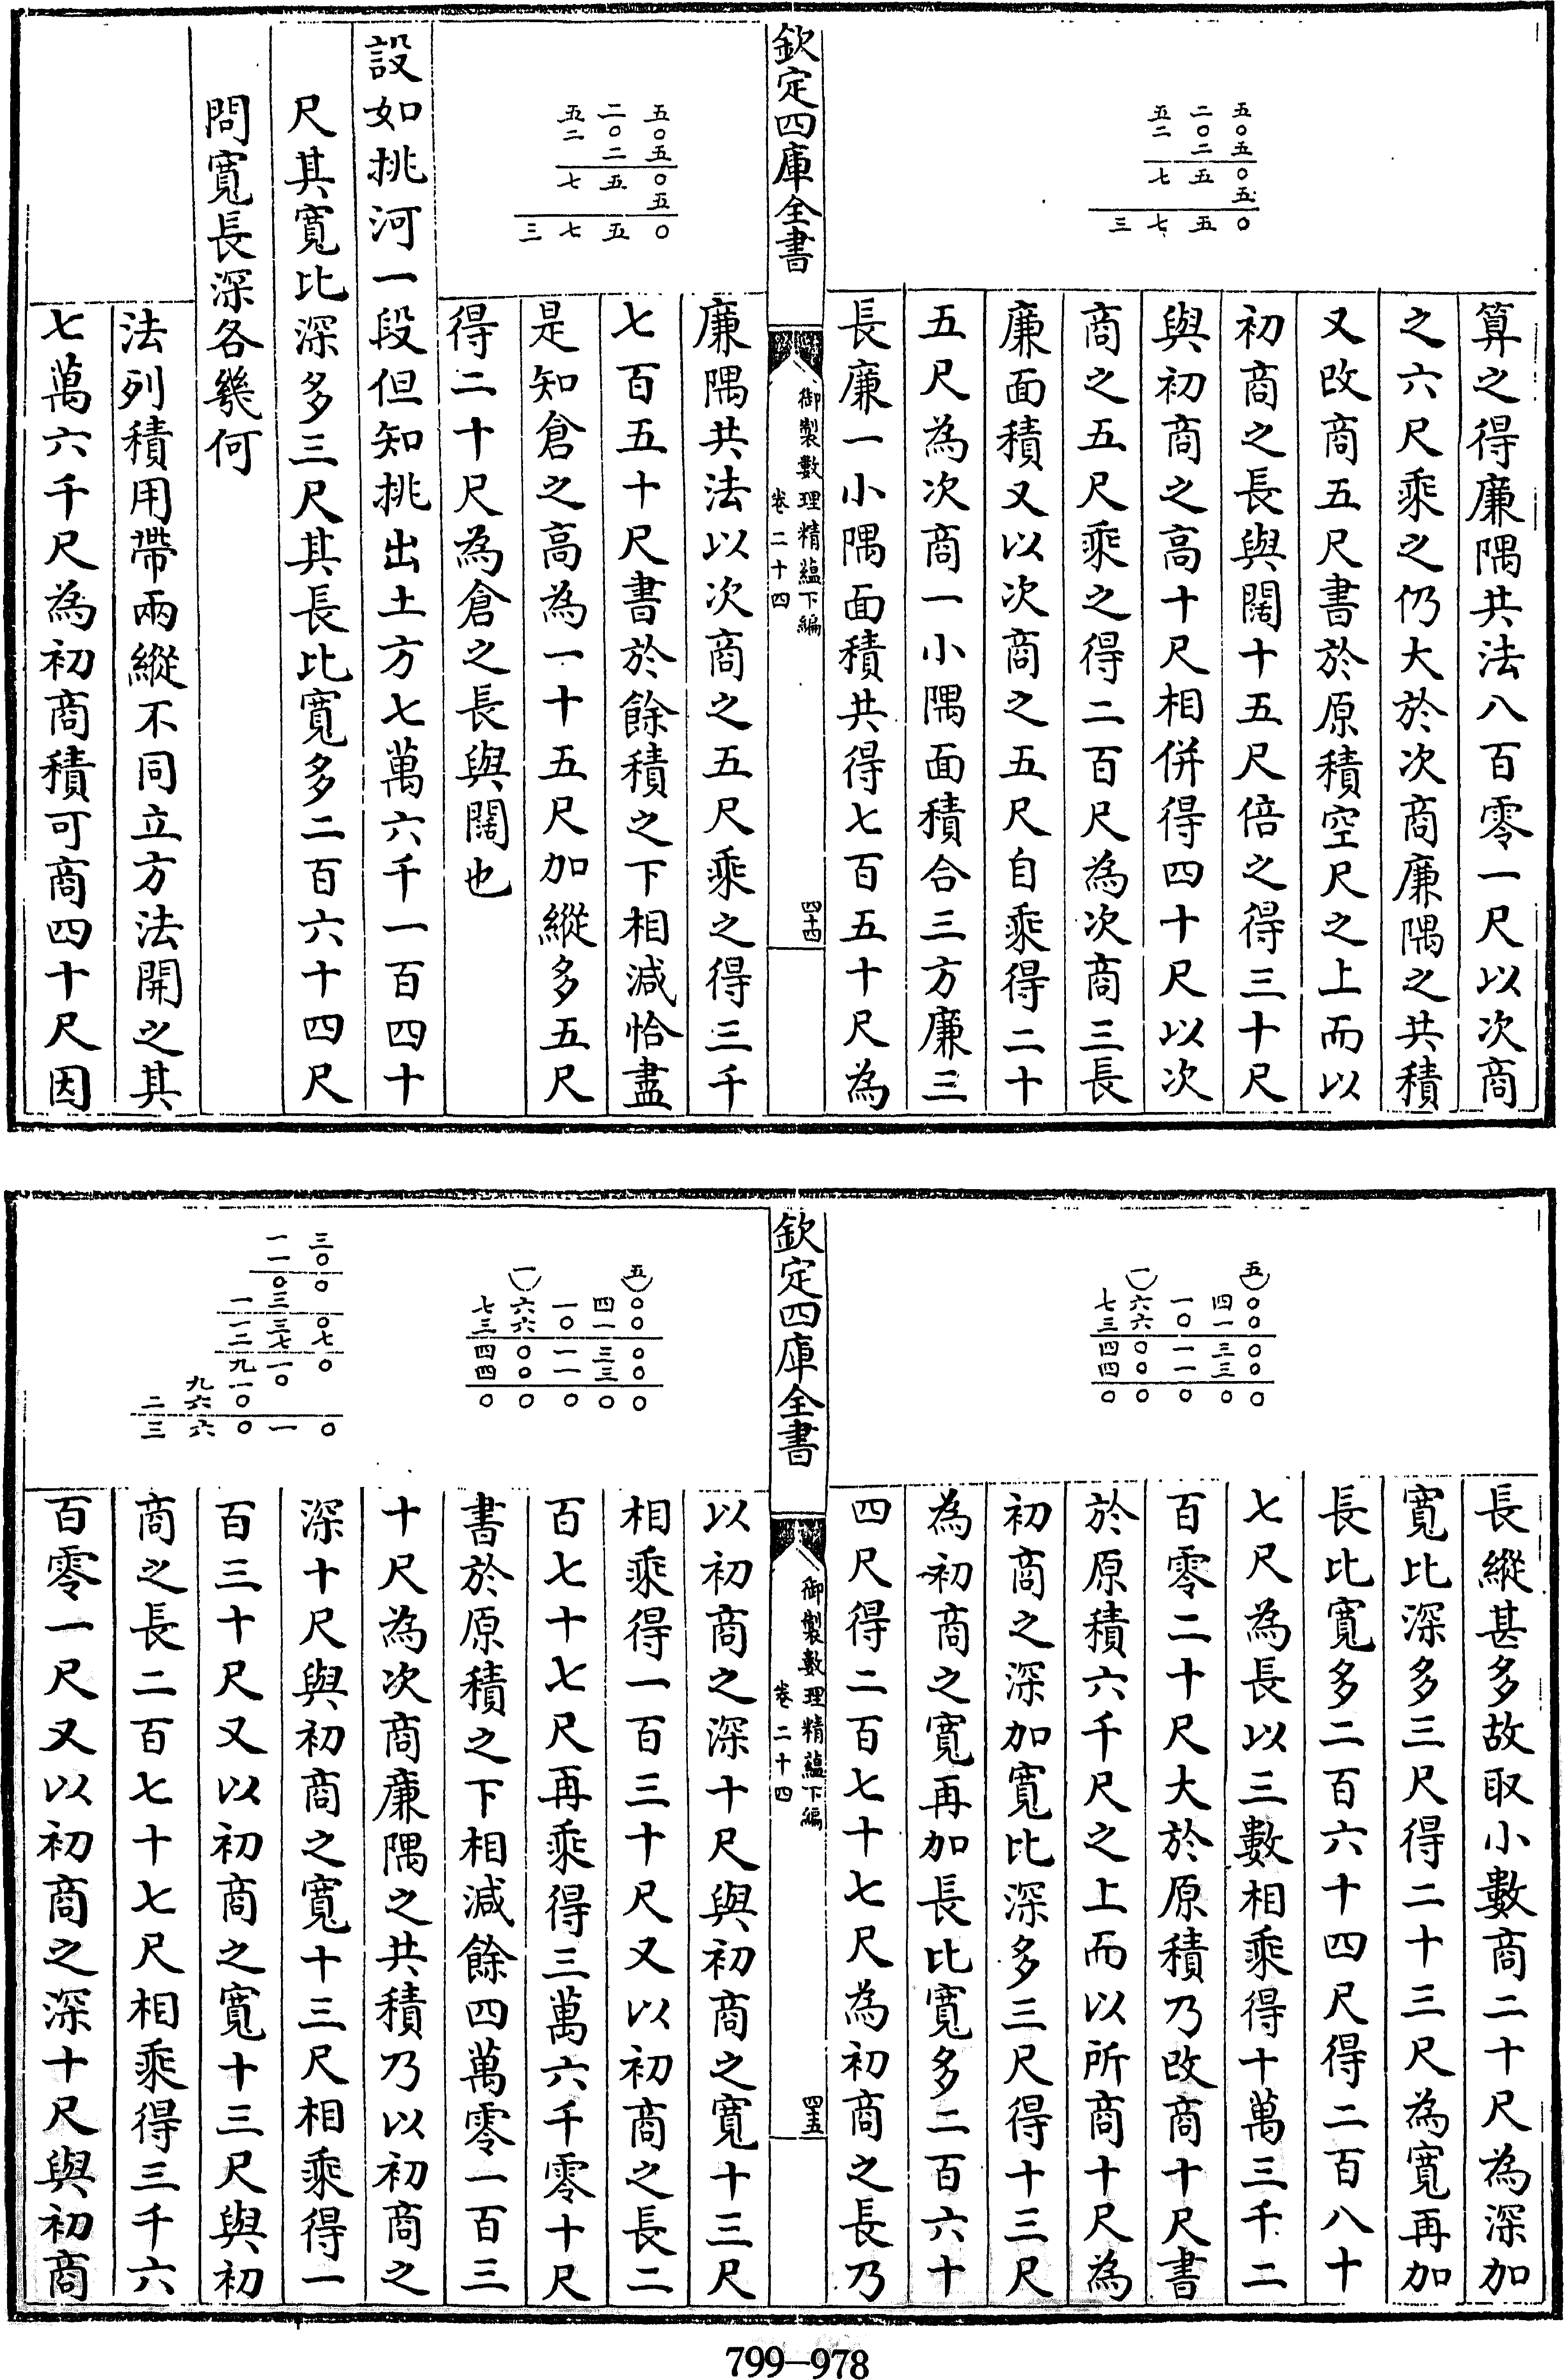 五〇五〇五〇
二〇二五五
五二七七
三
算之得廉隅共法八百零一尺以次商
之六尺乘之仍大於次商廉隅之共積
又改商五尺書於原積空尺之上而以
初商之長與闊十五尺倍之得三十尺
與初商之高十尺相併得四十尺以次
商之五尺乘之得二百尺為次商三長
廉面積又以次商之五尺自乘得二十
五尺為次商一小隅面積合三方廉三
長廉一小隅面積共得七百五十尺為
欽定四庫全書
御製數理精蘊下編
卷二十四
四十四
五〇五〇五〇
二〇二五五
五二七七
三
廉隅共法以次商之五尺乘之得三千
七百五十尺書於餘積之下相減恰盡
是知倉之高為一十五尺加縱多五尺
得二十尺為倉之長與闊也
設如挑河一段但知挑出土方七萬六千一百四十
尺其寬比深多三尺其長比寬多二百六十四尺
問寬長深各幾何
法列積用帶兩縱不同立方法開之其
七萬六千尺為初商積可商四十尺因
五〇〇〇〇〇
四一三三〇
一〇一一〇
一六六〇〇〇
七三四四〇
長縱甚多故取小數商二十尺為深加
寬比深多三尺得二十三尺為寬再加
長比寬多二百六十四尺得二百八十
七尺為長以三數相乘得十萬三千二
百零二十尺大於原積乃改商十尺書
於原積六千尺之上而以所商十尺為
初商之深加寬比深多三尺得十三尺
為初商之寬再加長比寬多二百六十
四尺得二百七十七尺為初商之長乃
欽定四庫全書
御製數理精蘊下編
卷二十四
四十五
五〇〇〇〇〇
四一三三〇
一〇一一〇
一六六〇〇〇
七三四四〇
三〇〇〇七〇〇
一一〇三三七一〇一
一一二九一〇〇
九六六
二三
以初商之深十尺與初商之寬十三尺
相乘得一百三十尺又以初商之長二
百七十七尺再乘得三萬六千零十尺
書於原積之下相減餘四萬零一百三
十尺為次商廉隅之共積乃以初商之
深十尺與初商之寬十三尺相乘得一
百三十尺又以初商之寬十三尺與初
商之長二百七十七尺相乘得三千六
百零一尺又以初商之深十尺與初商
799—978